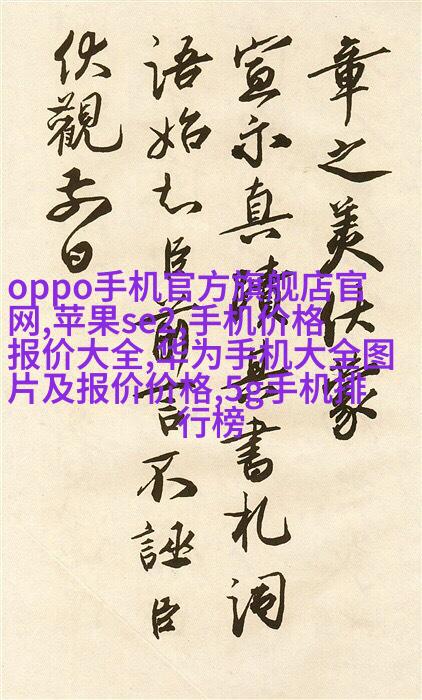 章之美伏蒙
宣示真其書札詞
語始知臣前言不誣臣
伏觀前日
oppo手机官方旗舰店官
网,苹果se2,手机价格
报价大全,华为手机大全图
片及报价价格,5g手机排
行榜